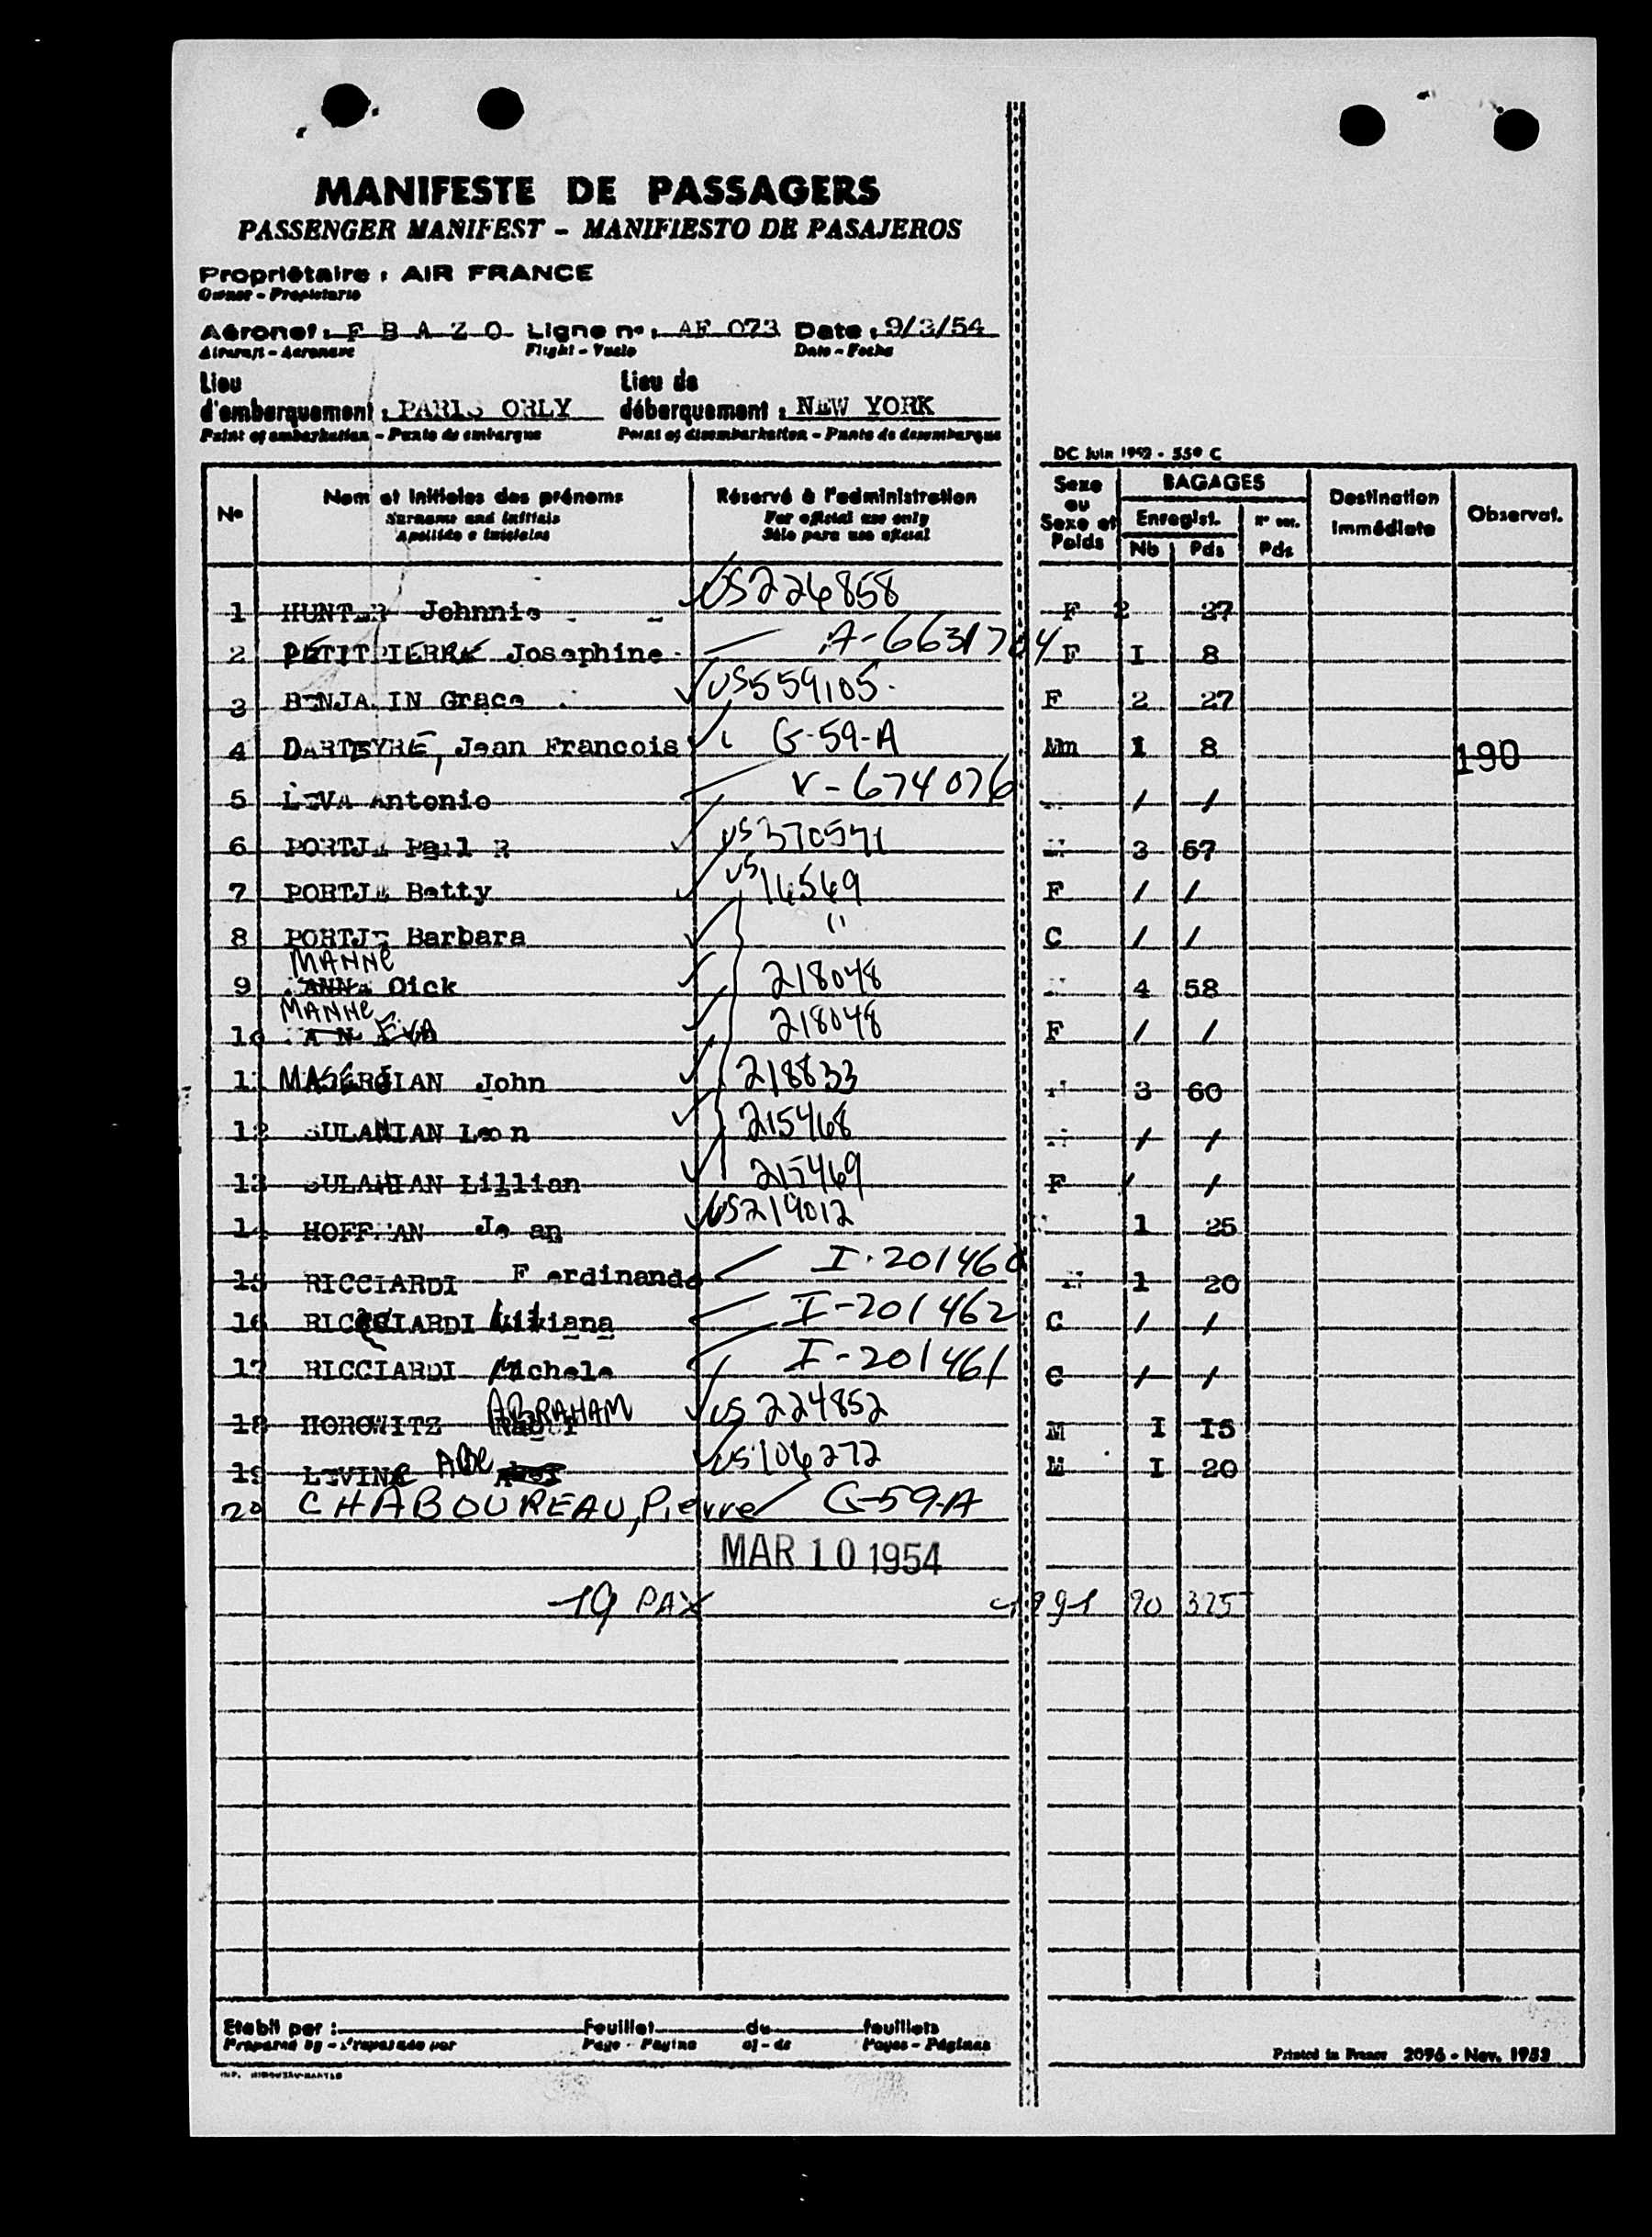 MANIFESTE DE PASSAGERS
PASSENGER MANIFEST - MANIFIESTO DE PASAJEROS
Propriétaire : AIR FRANCE
Owner - Propietario
Aéronef : F B A Z O Ligne n° : AF 073 Date : 9/3/54
Aircraft - Aeronave Flight - Vuelo Date - Fecha
Lieu d'embarquement : PARIS ORLY Lieu de débarquement : NEW YORK
Point of embarkation - Punto de embarque Point of disembarkation - Punto de desembarque
DC Juin 1952 - 550 C
N° Nom et initiales des prénoms Réservé à l'administration Sexe ou Sexe et Poids BAGAGES Destination immédiate Observat.
Surname and initials For official use only Enregist.
Apellido e iniciales Sólo para uso oficial Nb Pds Pds
1 HUNTER Johnnie US224858 F 2 27
2 PETITPIERRE Josephine A-6631704 F I 8
3 BENJA IN Grace US559105 F 2 27
4 DARTEYRE, Jean Francois G-59-A Mm 1 8 190
5 LEVA Antonio V-674076 / /
6 PORTJE Paul R US370571 3 67
7 PORTJE Betty US14569 F / /
8 PORTJE Barbara " C / /
9 MANNE Dick 218048 4 58
10 MANNE EVA 218048 F / /
11 MASERGIAN John 218833 3 60
12 SULANIAN Leon 215468 / /
13 SULANIAN Lillian 215469 F / /
14 HOFF AN Je an US219012 1 25
15 RICCIARDI F erdinando I-201460 1 20
16 RICCIARDI Liliana I-201462 C / /
17 RICCIARDI Michele I-201461 C / /
18 HOROWITZ ABRAHAM US 224852 M I I5
19 LEVINE ABE US106272 M I 20
20 CHABOUREAU, Pierre G-59-A
MAR 10 1954
19 PAX 20 325
Etabli par : Feuillet de feuillets
Prepared by - Preparado por Page - Página of - de Pages - Páginas
Printed in France 2096 - Nov. 1953